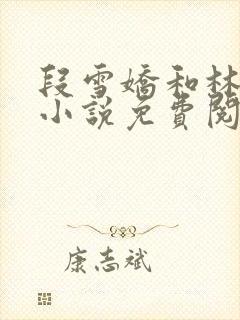 段雪嬌和林
小説免費閱
康志斌